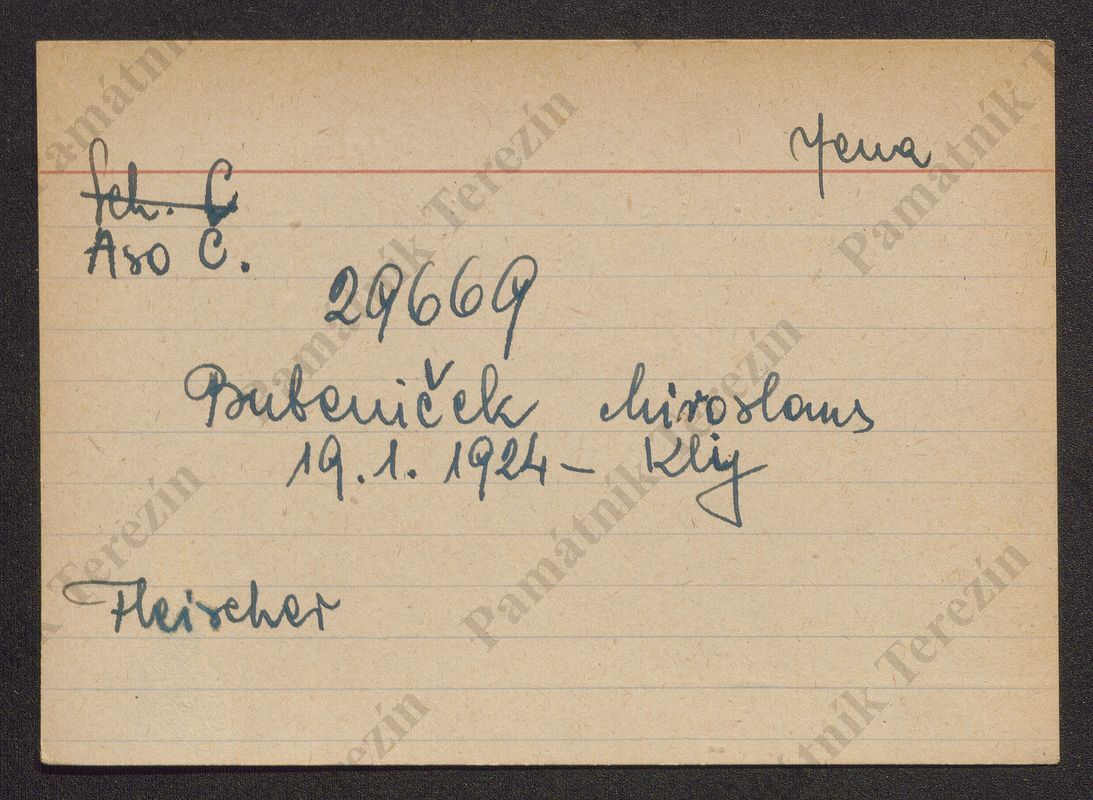 Jena
Sch. C
Aso Č.
29669
Bubeniček Miroslaus
19.1. 1924 - Klij
Fleischer
Památník Terezín